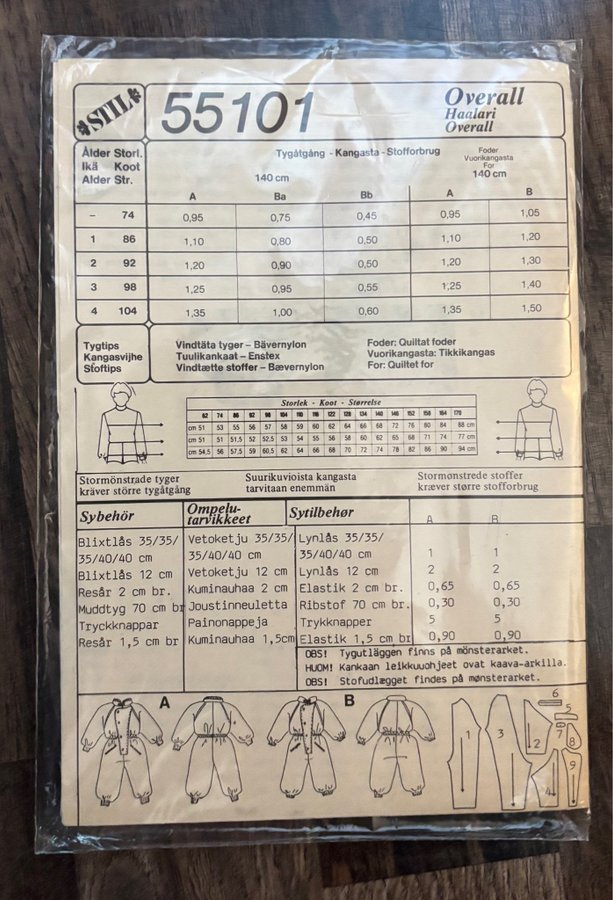 STIL
55101
Overall
Haalari
Overall
Ålder Storl.
Ikä Koot
Alder Str.
Tygåtgång - Kangasta - Stofforbrug
140 cm
Foder
Vuorikangasta
For
140 cm
A Ba Bb A B
– 74 0,95 0,75 0,45 0,95 1,05
1 86 1,10 0,80 0,50 1,10 1,20
2 92 1,20 0,90 0,50 1,20 1,30
3 98 1,25 0,95 0,55 1,25 1,40
4 104 1,35 1,00 0,60 1,35 1,50
Tygtips
Kangasvijhe
Stoftips
Vindtäta tyger – Bävernylon
Tuulikankaat – Enstex
Vindtætte stoffer – Bævernylon
Foder: Quiltat foder
Vuorikangasta: Tikkikangas
For: Quiltet for
Storlek - Koot - Størrelse
62 74 86 92 98 104 110 116 122 128 134 140 146 152 158 164 170
cm 51 53 55 56 57 58 59 60 62 64 66 68 72 76 80 84 88 cm
cm 51 51 51,5 52 52,5 53 54 55 56 58 60 62 65 68 71 74 77 cm
cm 54,5 56 57,5 59 60,5 62 64 66 68 70 72 74 78 82 86 90 94 cm
Stormönstrade tyger
kräver större tygåtgång
Suurikuvioista kangasta
tarvitaan enemmän
Stormønstrede stoffer
kræver større stofforbrug
Sybehör
Ompelu-
tarvikkeet
Sytilbehør
A B
Blixtlås 35/35/ Vetoketju 35/35/ Lynlås 35/35/
35/40/40 cm 35/40/40 cm 35/40/40 cm 1 1
Blixtlås 12 cm Vetoketju 12 cm Lynlås 12 cm 2 2
Resår 2 cm br. Kuminauhaa 2 cm Elastik 2 cm br. 0,65 0,65
Muddtyg 70 cm br Joustinneuletta Ribstof 70 cm br. 0,30 0,30
Tryckknappar Painonappeja Trykknapper 5 5
Resår 1,5 cm br Kuminauhaa 1,5cm Elastik 1,5 cm br. 0,90 0,90
OBS! Tygutläggen finns på mönsterarket.
HUOM! Kankaan leikkuuohjeet ovat kaava-arkilla.
OBS! Stofudlægget findes på mønsterarket.
A B
1 3 2 4 6 5 7 8 9